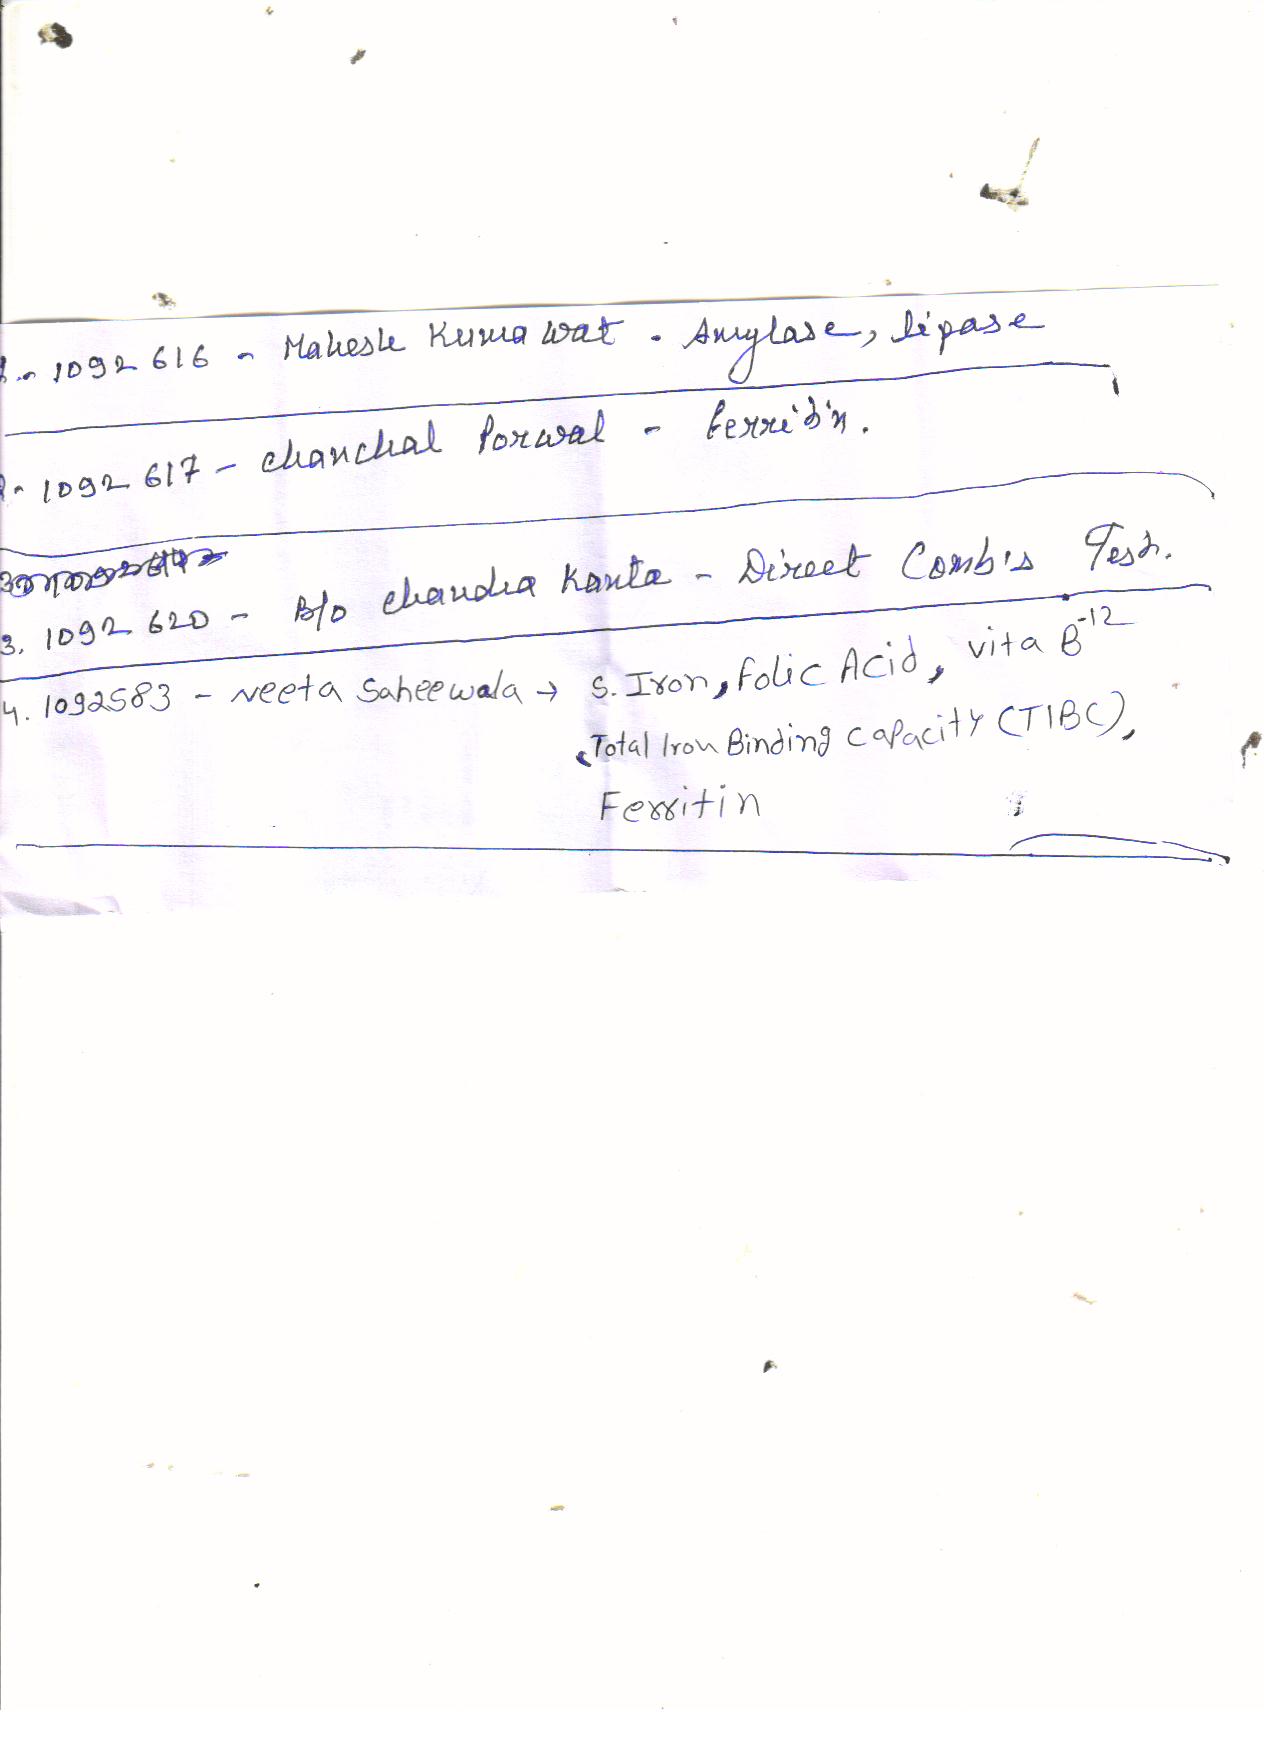 1.- 1092 616 - Mahesh Kumawat - Amylase, lipase
2- 1092 617 - Chanchal Porwal - ferritin.
3. 1092 620 - B/o Chandra Kanta - Direct Comb's Test.
4. 1092583 - Neeta Saheewala → S. Iron, Folic Acid, vita B-12
Total Iron Binding capacity (TIBC),
Ferritin